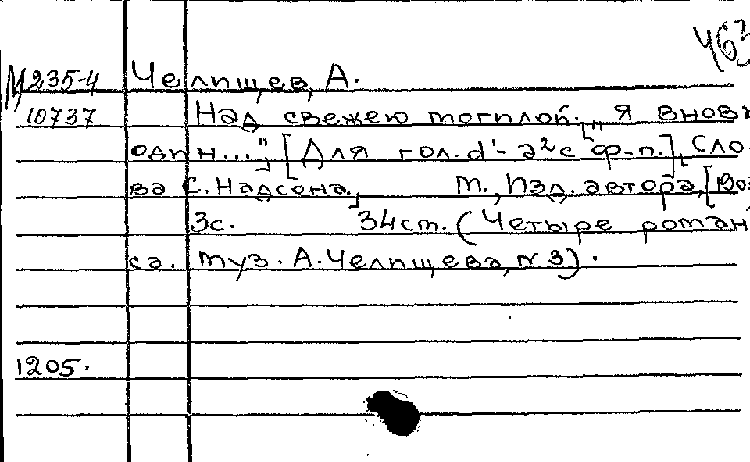 463
М 235-4 Челищев, А.
10737 Над свежею могилой. „Я вновь
один...", [Для гол. d¹-a² с ф-п.], Сло-
ва С. Надсона. М., Изд. автора, [
3с. 34см. (Четыре роман-
са. муз. А. Челищева, № 3).
1205.